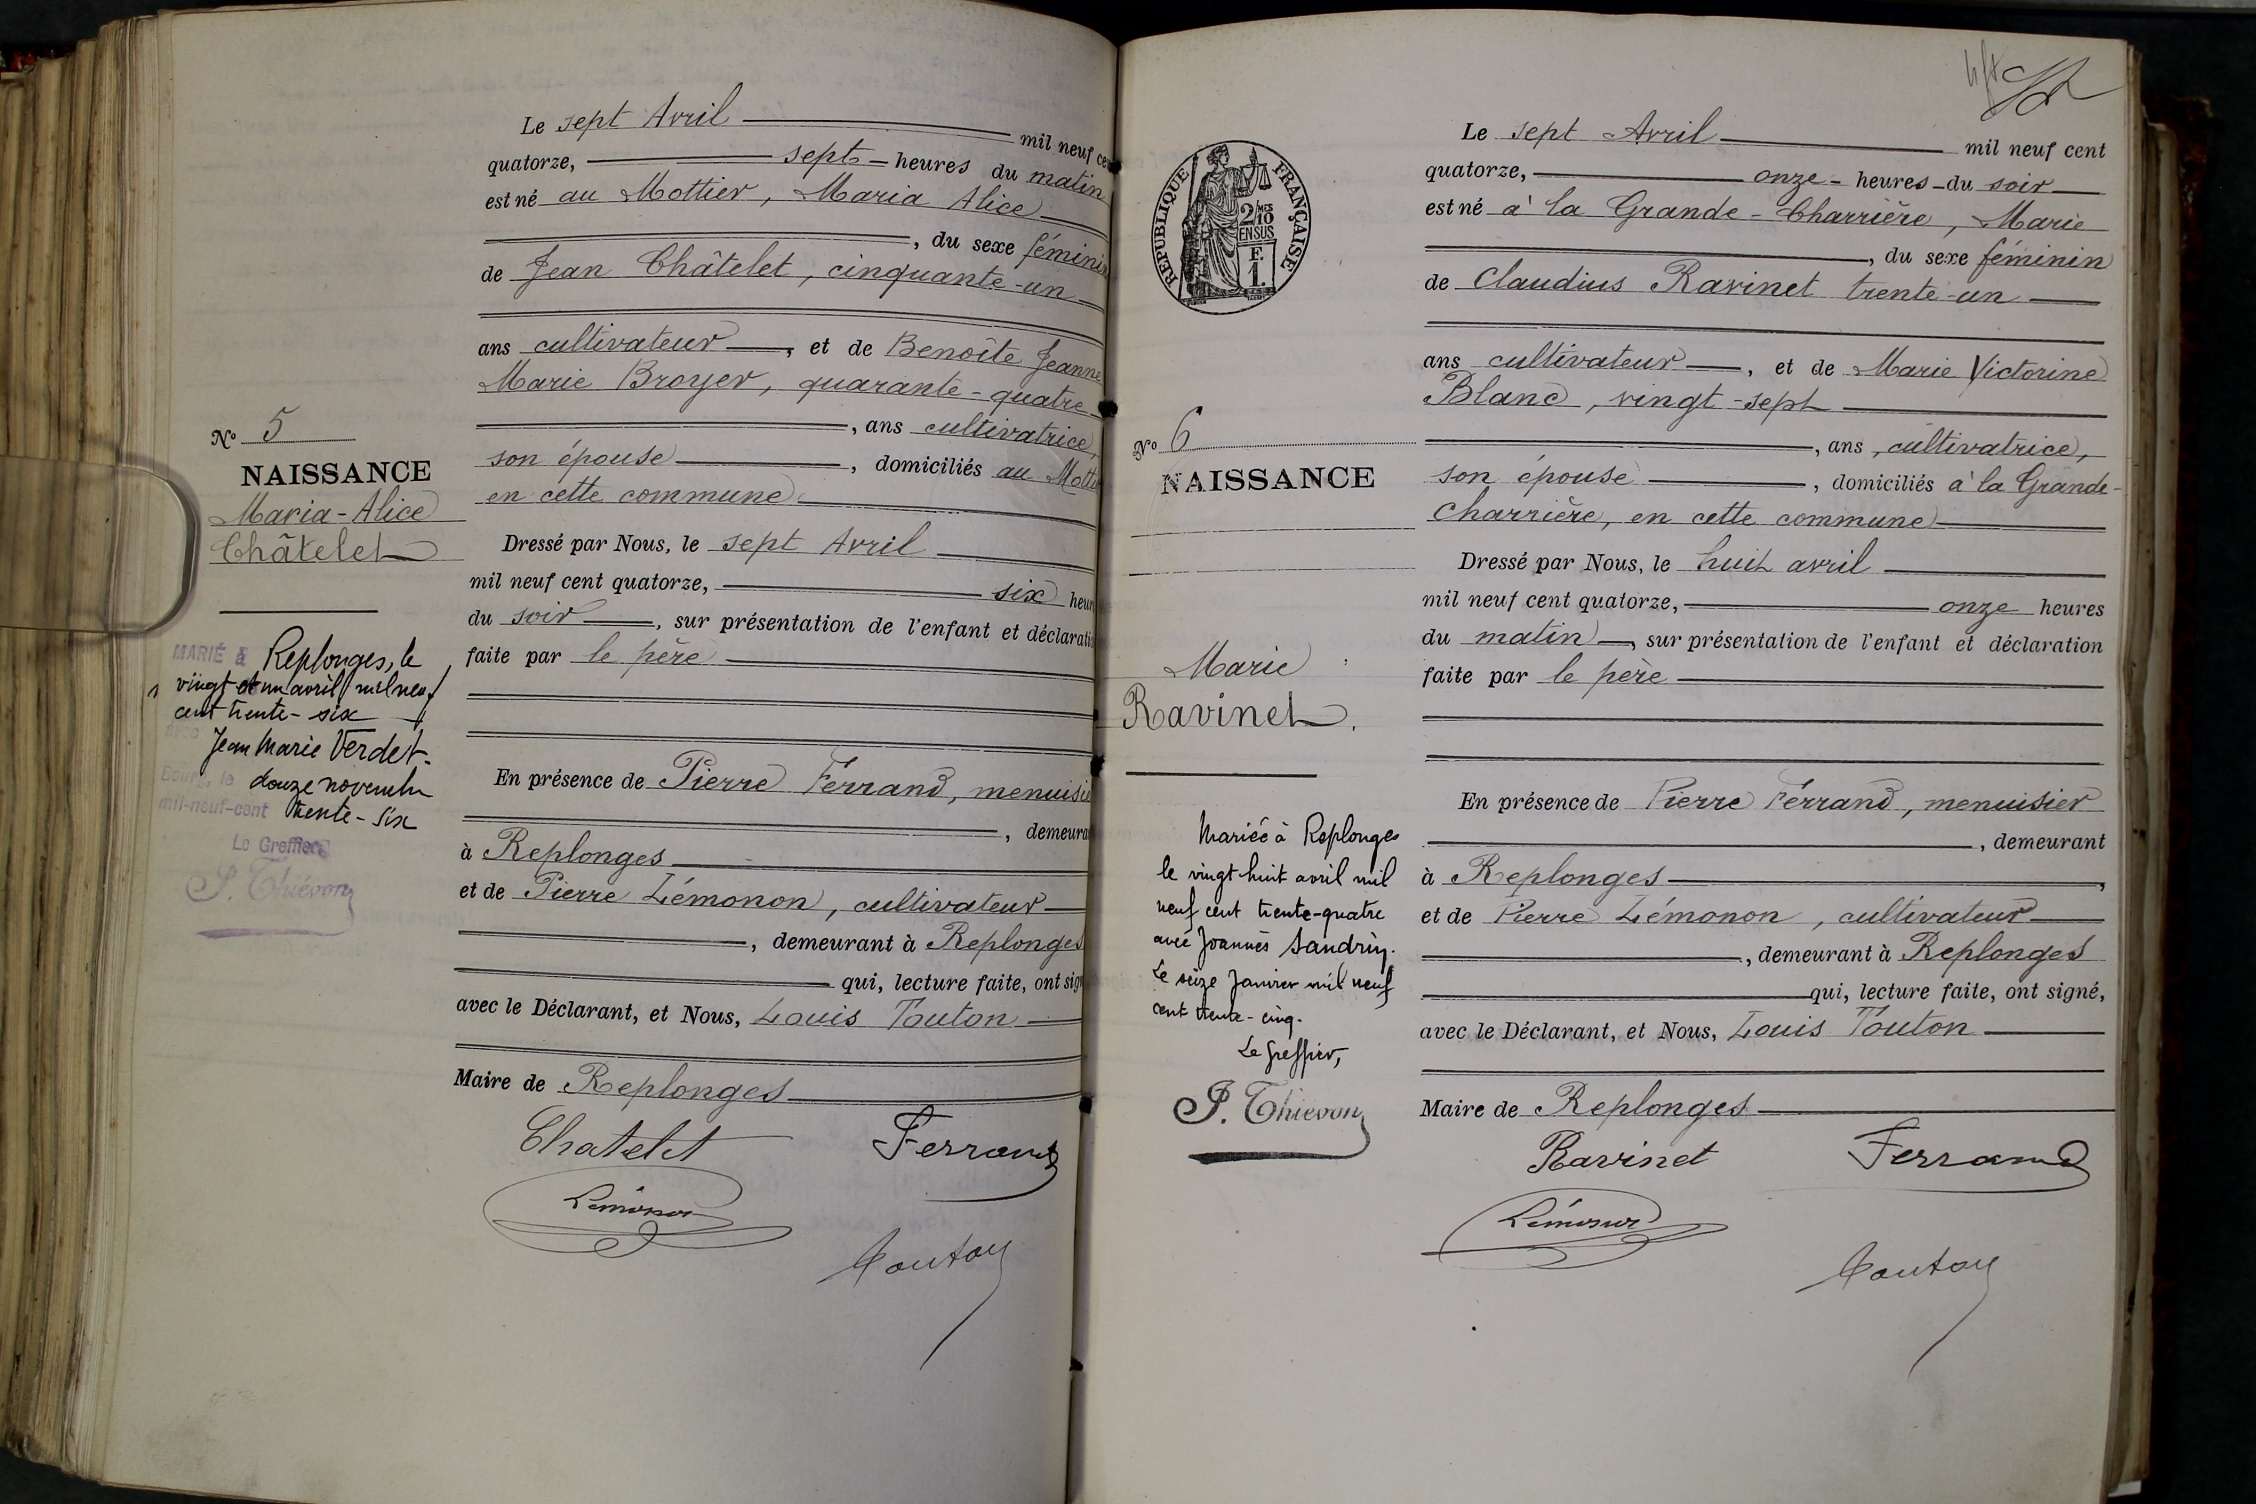 Le sept Avril mil neuf cen
quatorze, sept heures du matin
est né au Mottier, Maria Alice
, du sexe féminin
de Jean Châtelet, cinquante-un
ans cultivateur, et de Benoîte Jeanne
Marie Broyer, quarante-quatre
, ans cultivatrice,
son épouse, domiciliés au Motti
en cette commune
Dressé par Nous, le sept Avril
mil neuf cent quatorze, six heur
du soir, sur présentation de l'enfant et déclarati
faite par le père
En présence de Pierre Ferrand, menuisie
, demeura
à Replonges
et de Pierre Lémonon, cultivateur
, demeurant à Replonges
qui, lecture faite, ont sig
avec le Déclarant, et Nous, Louis Touton
Maire de Replonges
Chatelet Ferrand
Lémonon
Touton
N° 5
NAISSANCE
Maria-Alice
Châtelet
MARIÉ à Replonges, le
vingt et un avril mil neuf
cent trente-six
Jean Marie Verdet.
Bourg, le douze novembre
mil-neuf-cent trente-six
Le Greffier
P. Thiévon
REPUBLIQUE FRANÇAISE
2/10 MES
EN SUS
F.
1.
Le sept Avril mil neuf cent
quatorze, onze heures du soir
est né à la Grande-Charrière, Marie
, du sexe féminin
de Claudius Ravinet trente-un
ans cultivateur, et de Marie Victorine
Blanc, vingt-sept
, ans, cultivatrice,
son épouse, domiciliés à la Grande-
Charrière, en cette commune
Dressé par Nous, le huit avril
mil neuf cent quatorze, onze heures
du matin, sur présentation de l'enfant et déclaration
faite par le père
En présence de Pierre Ferrand, menuisier
, demeurant
à Replonges,
et de Pierre Lémonon, cultivateur
, demeurant à Replonges
qui, lecture faite, ont signé,
avec le Déclarant, et Nous, Louis Touton
Maire de Replonges
Ravinet Ferrand
Lémonon
Touton
N° 6
NAISSANCE
Marie
Ravinet.
Mariée à Replonges
le vingt huit avril mil
neuf cent trente-quatre
avec Joannès Sandrin.
Le seize Janvier mil neuf
cent trente-cinq.
Le Greffier,
P. Thiévon